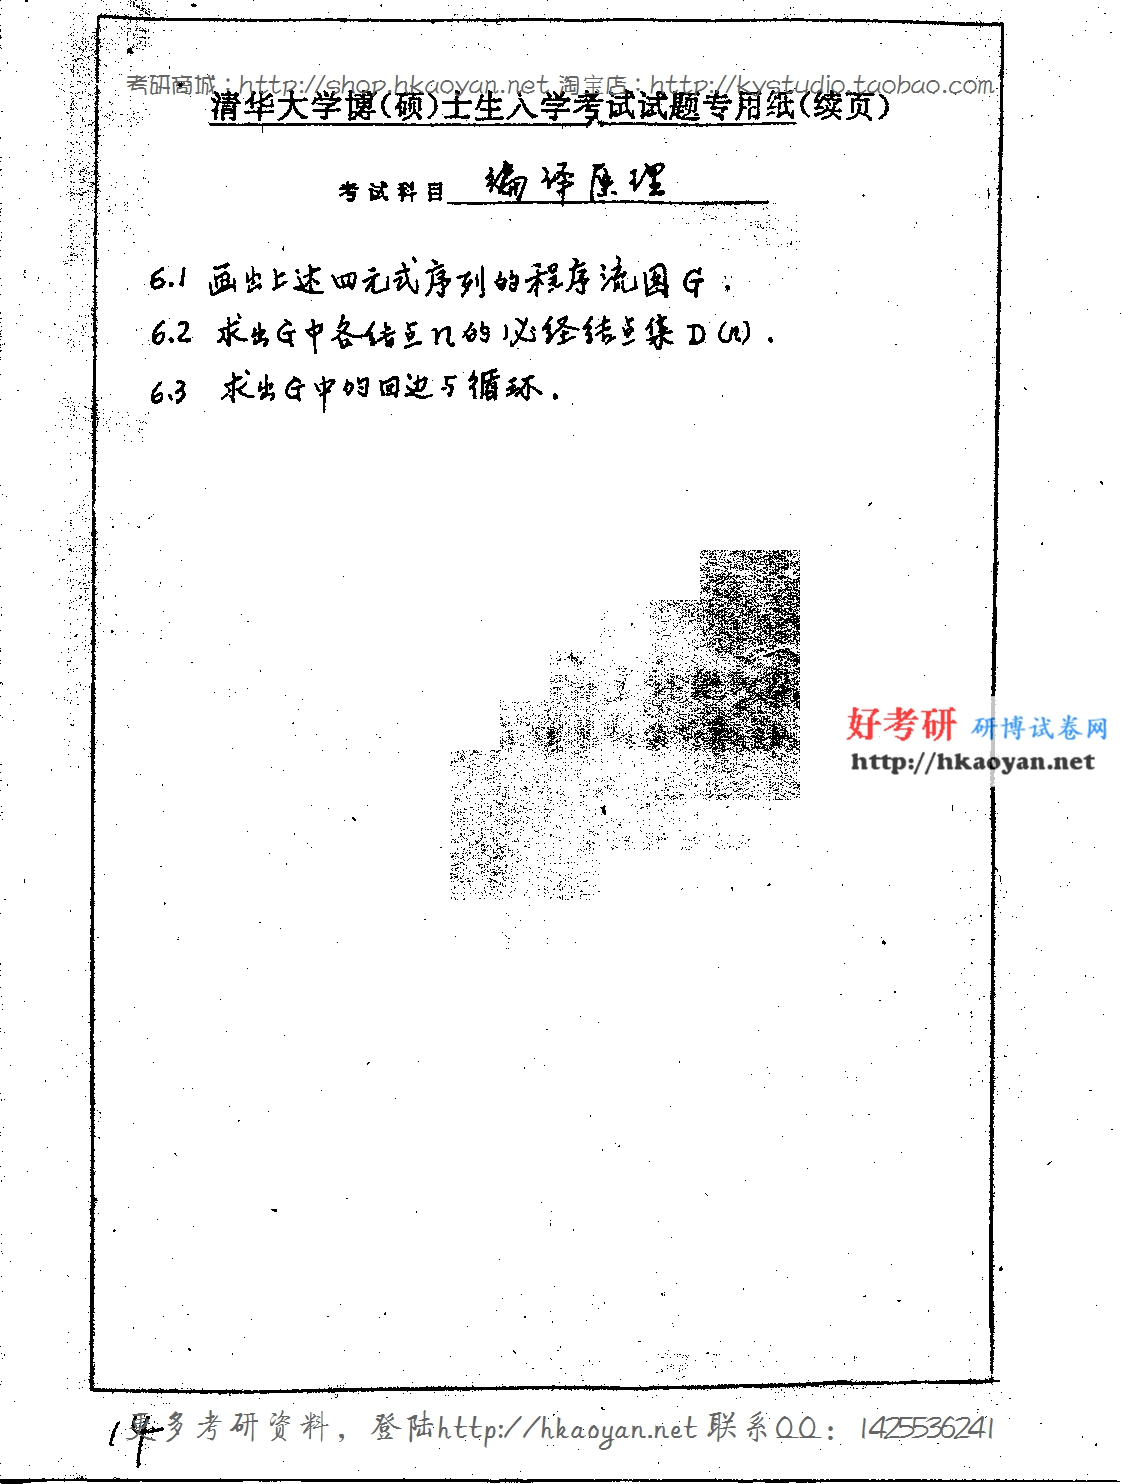 考研商城：http://shop.hkaoyan.net 淘宝店：http://kystudio.taobao.com
清华大学博(硕)士生入学考试试题专用纸(续页)
考试科目 编译原理
6.1 画出上述四元式序列的程序流图G.
6.2 求出G中各结点n的必经结点集D(n).
6.3 求出G中的回边与循环.
好考研 研博试卷网
http://hkaoyan.net
14
更多考研资料，登陆http://hkaoyan.net 联系QQ：1425536241